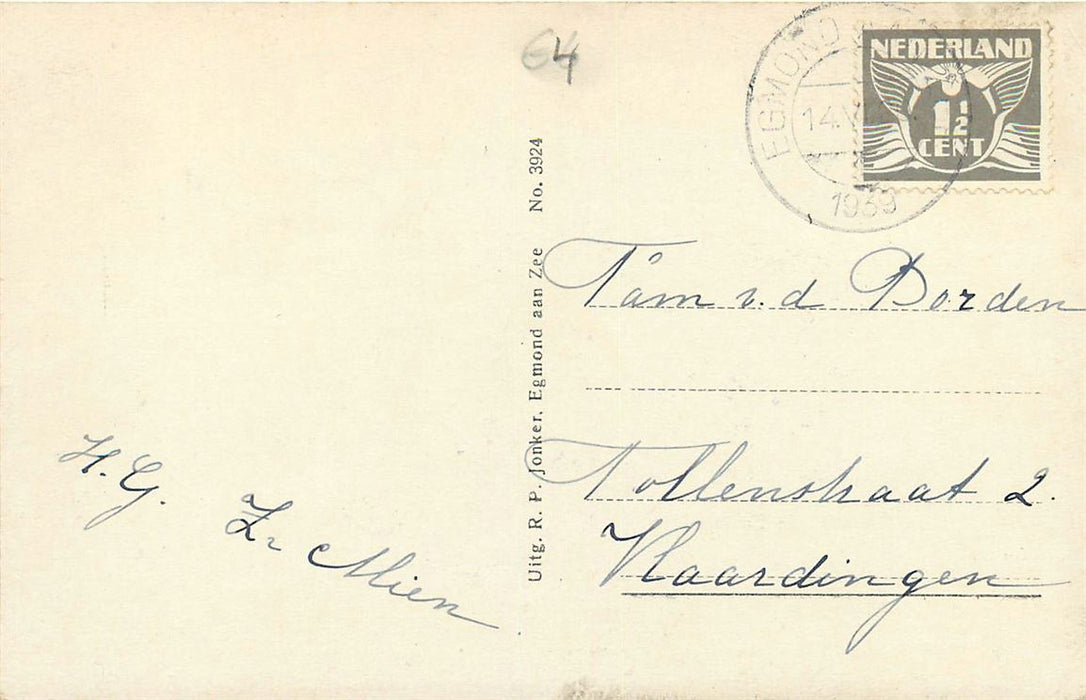 64
EGMOND
14 V
1939
NEDERLAND
1½
CENT
Uitg. R. P. Jonker, Egmond aan Zee No. 3924
v. d Borden
Tollenstraat 2.
Vlaardingen
H. G.
Zr Mien